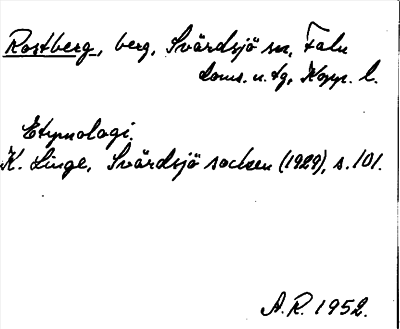 Rostberg, berg, Svärdsjö sn, Falu
doms. n. tg, Kopp. l.
Etymologi.
K. Linge, Svärdsjö socken (1929), s. 101.
A.R. 1952.